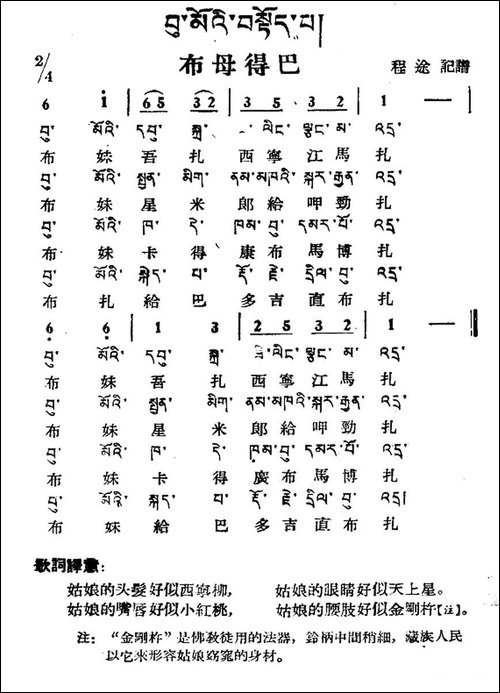 བུ་མོའི་བསྟོད་པ།
布母得巴
2/4
程途 記譜
6 i | 6 5 3 2 | 3 5 3 2 | 1 — |
བུ་ མོའི་ དབུ་ སྐྲ་ ་ལིང་ ལྕང་ མ་ འདྲ་
布 妹 吾 扎 西 寧 江 馬 扎
བུ་ མོའི་ སྤྱན་ མིག་ ནམ་མཁའི་ སྐར་རྒྱན་ འདྲ་
布 妹 星 米 郎 給 呷 勁 扎
བུ་ མོའི་ ཁ་ དེ་ ཁམ་བུ་ དམར་པོ་ འདྲ་
布 妹 卡 得 康 布 馬 博 扎
བུ་ མོའི་ སྐེད་ པ་ རྡོ་ རྗེ་ དྲིལ་བུ་ འདྲ་
布 扎 給 巴 多 吉 直 布 扎
6 6 | 1 3 | 2 5 3 2 | 1 — ‖
བུ་ མོའི་ དབུ་ སྐྲ་ ལིང་ ལྕང་ མ་ འདྲ་
布 妹 吾 扎 西 寧 江 馬 扎
བུ་ མོའི་ སྤྱན་ མིག་ ནམ་མཁའི་ སྐར་རྒྱན་ འདྲ་
布 妹 星 米 郎 給 呷 勁 扎
བུ་ མོའི་ ཁ་ དེ་ ཁམ་བུ་ དམར་པོ་ འདྲ་
布 妹 卡 得 康 布 馬 博 扎
བུ་ མོའི་ སྐད་ པ་ རྡོ་ རྗེ་ དྲིལ་ བུ་ འདྲ།
布 妹 給 巴 多 吉 直 布 扎
歌詞譯意:
姑娘的头髮好似西寧柳, 姑娘的眼睛好似天上星。
姑娘的嘴唇好似小紅桃, 姑娘的腰肢好似金剛杵【注】。
注: “金剛杵”是佛敎徒用的法器, 鈴柄中間稍細, 藏族人民
以它來形容姑娘窈窕的身材。